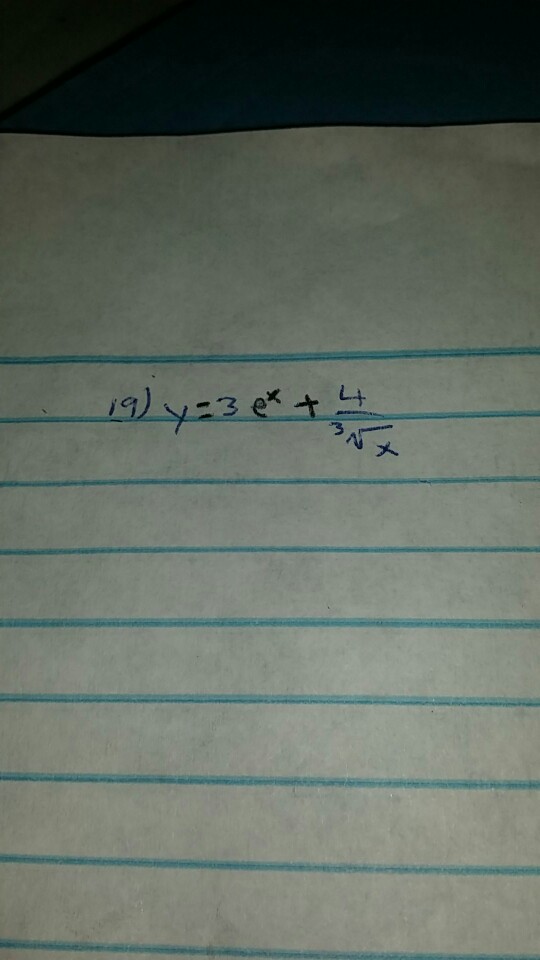 19) y = 3 eˣ + 4/³√x